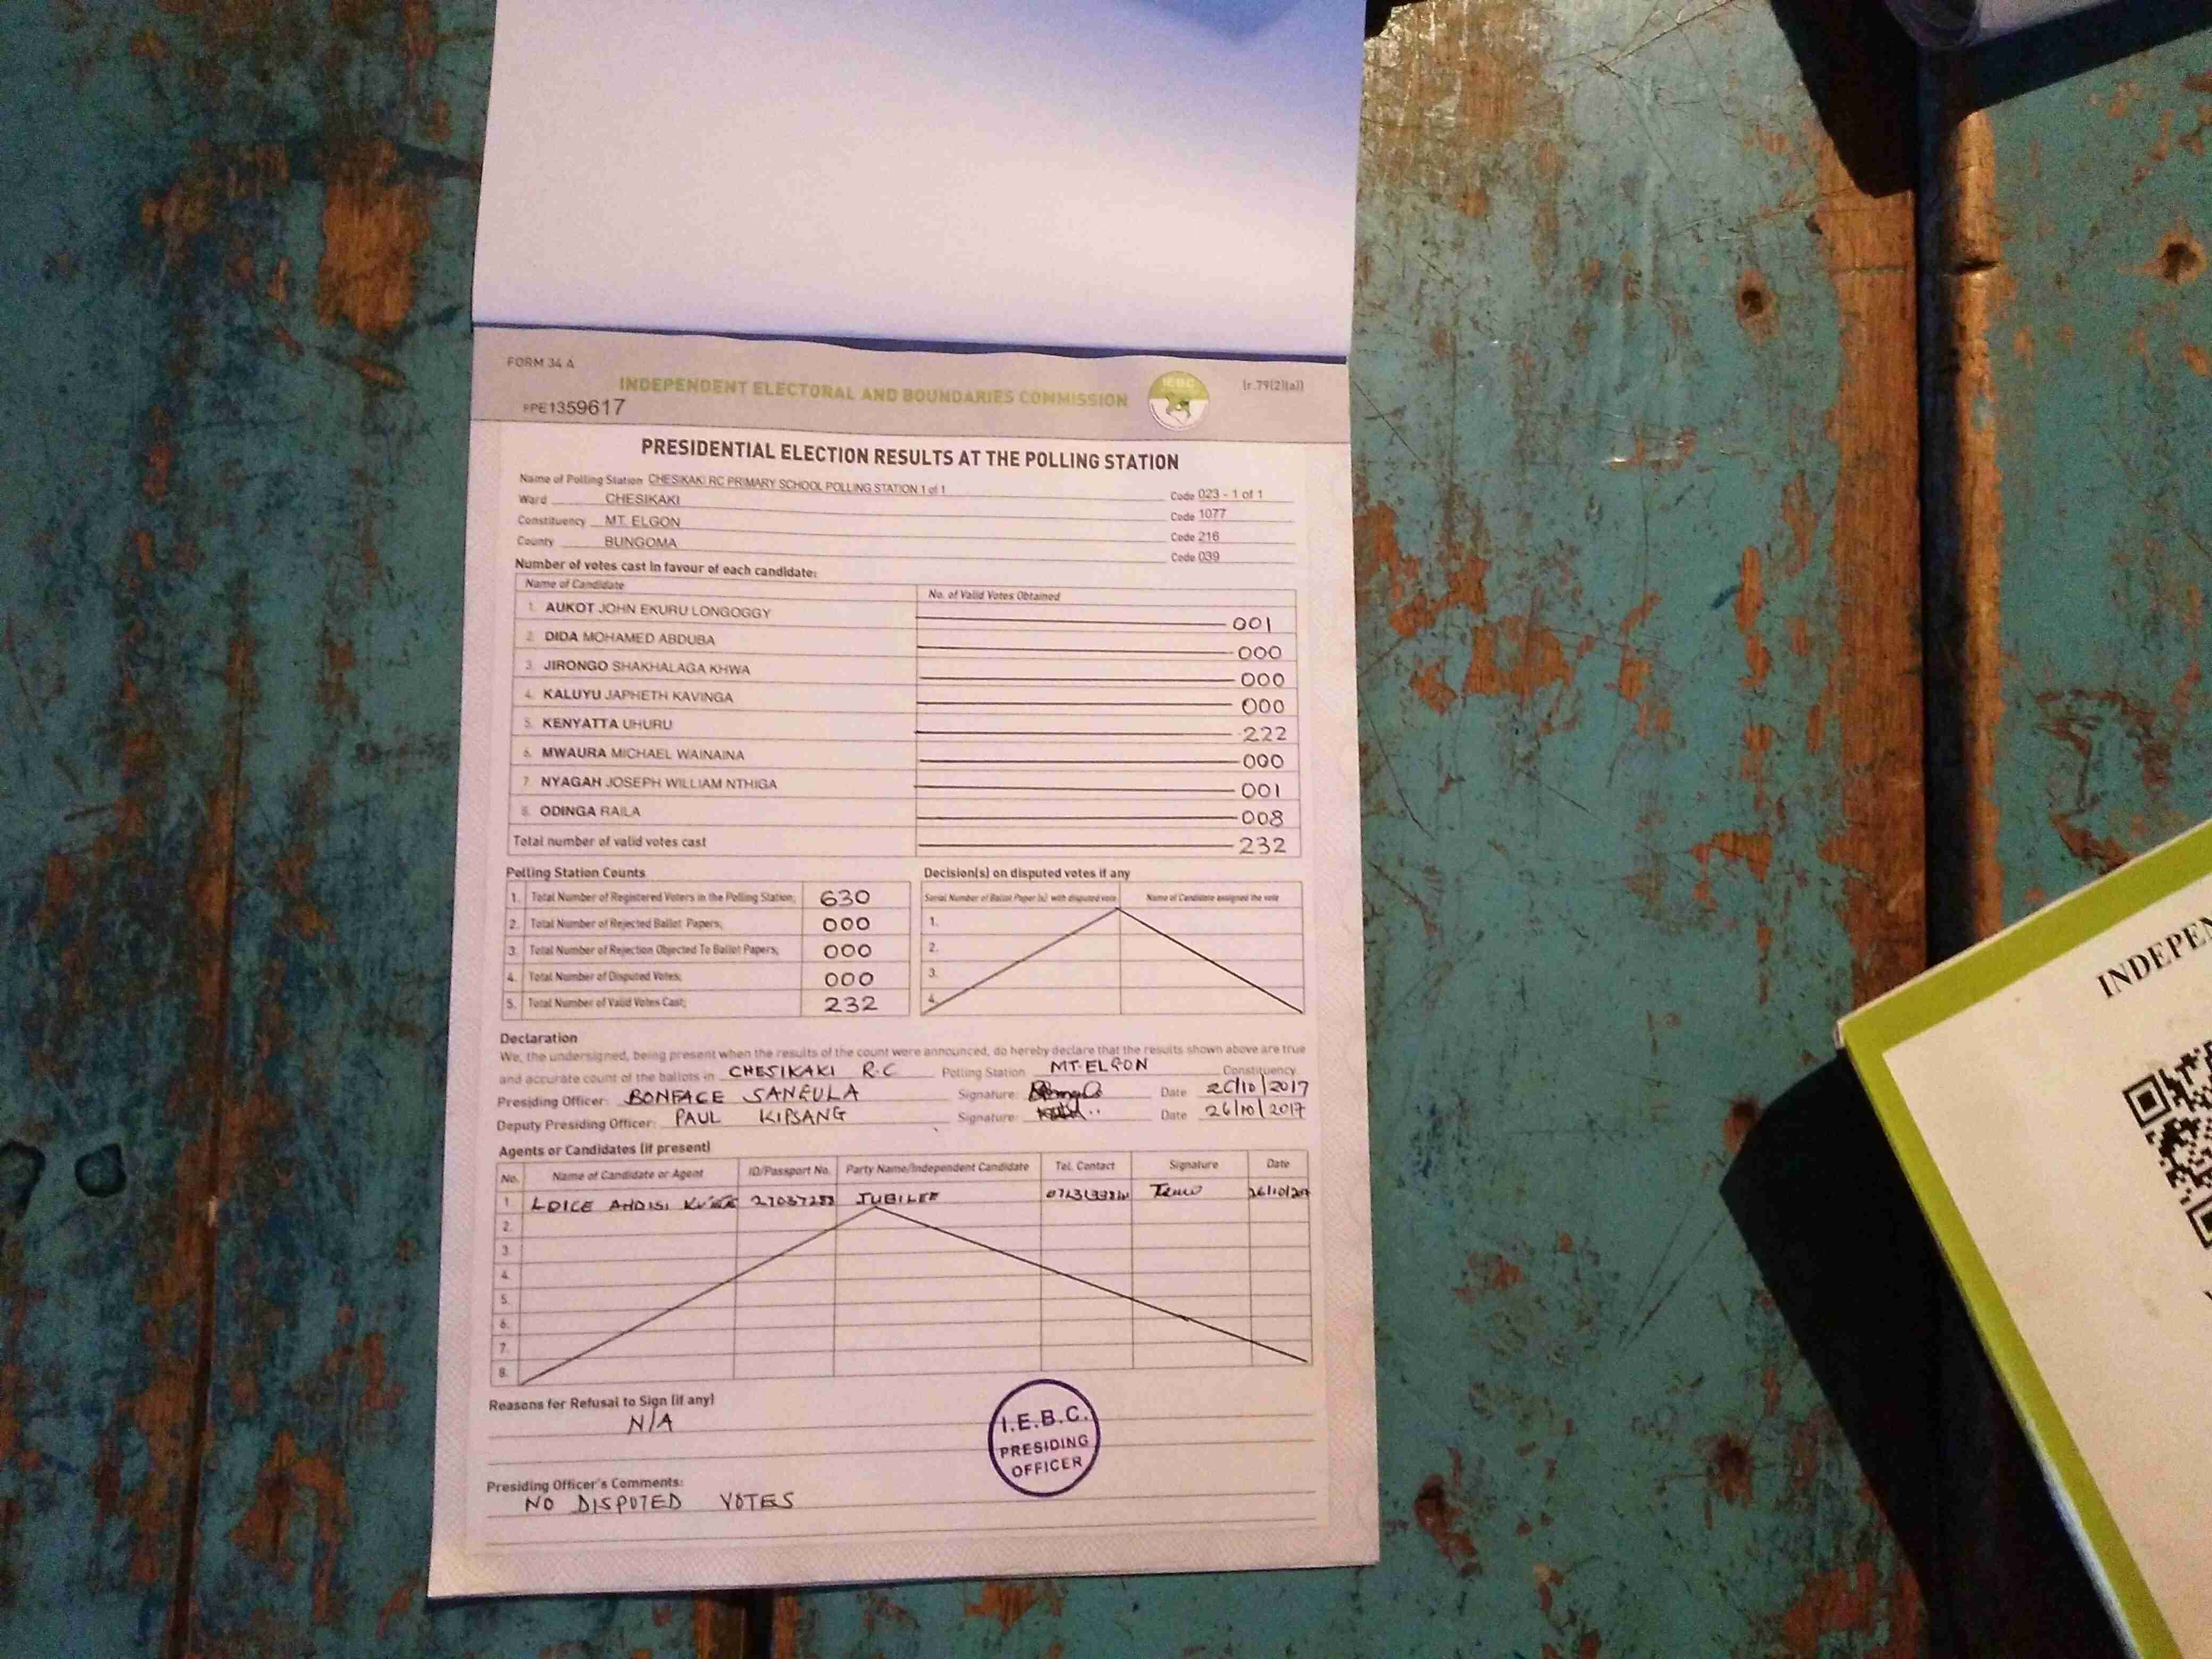 FORM 34 A
INDEPENDENT ELECTORAL AND BOUNDARIES COMMISSION
IEBC
(r.79(2)(a))
PPE1359617
PRESIDENTIAL ELECTION RESULTS AT THE POLLING STATION
Name of Polling Station CHESIKAKI RC PRIMARY SCHOOL POLLING STATION 1 of 1 Code 023 - 1 of 1
Ward CHESIKAKI Code 1077
Constituency MT. ELGON Code 216
County BUNGOMA Code 039
Number of votes cast in favour of each candidate:
Name of Candidate No. of Valid Votes Obtained
1. AUKOT JOHN EKURU LONGOGGY 001
2. DIDA MOHAMED ABDUBA 000
3. JIRONGO SHAKHALAGA KHWA 000
4. KALUYU JAPHETH KAVINGA 000
5. KENYATTA UHURU 222
6. MWAURA MICHAEL WAINAINA 000
7. NYAGAH JOSEPH WILLIAM NTHIGA 001
8. ODINGA RAILA 008
Total number of valid votes cast 232
Polling Station Counts
1. Total Number of Registered Voters in the Polling Station; 630
2. Total Number of Rejected Ballot Papers; 000
3. Total Number of Rejection Objected To Ballot Papers; 000
4. Total Number of Disputed Votes; 000
5. Total Number of Valid Votes Cast; 232
Decision(s) on disputed votes if any
Serial Number of Ballot Paper (s) with disputed vote Name of Candidate assigned the vote
1.
2.
3.
4.
Declaration
We, the undersigned, being present when the results of the count were announced, do hereby declare that the results shown above are true
and accurate count of the ballots in CHESIKAKI R.C Polling Station MT-ELGON Constituency
Presiding Officer: BONFACE Signature: Date 26/10/2017
Deputy Presiding Officer: PAUL KIPSANG Signature: Date 26/10/2017
Agents or Candidates (if present)
No. Name of Candidate or Agent ID/Passport No. Party Name/Independent Candidate Tel. Contact Signature Date
1 LOICE JUBILEE
2.
3.
4.
5.
6.
7.
8.
Reasons for Refusal to Sign (if any)
N/A
I.E.B.C.
PRESIDING
OFFICER
Presiding Officer's Comments:
NO DISPUTED VOTES